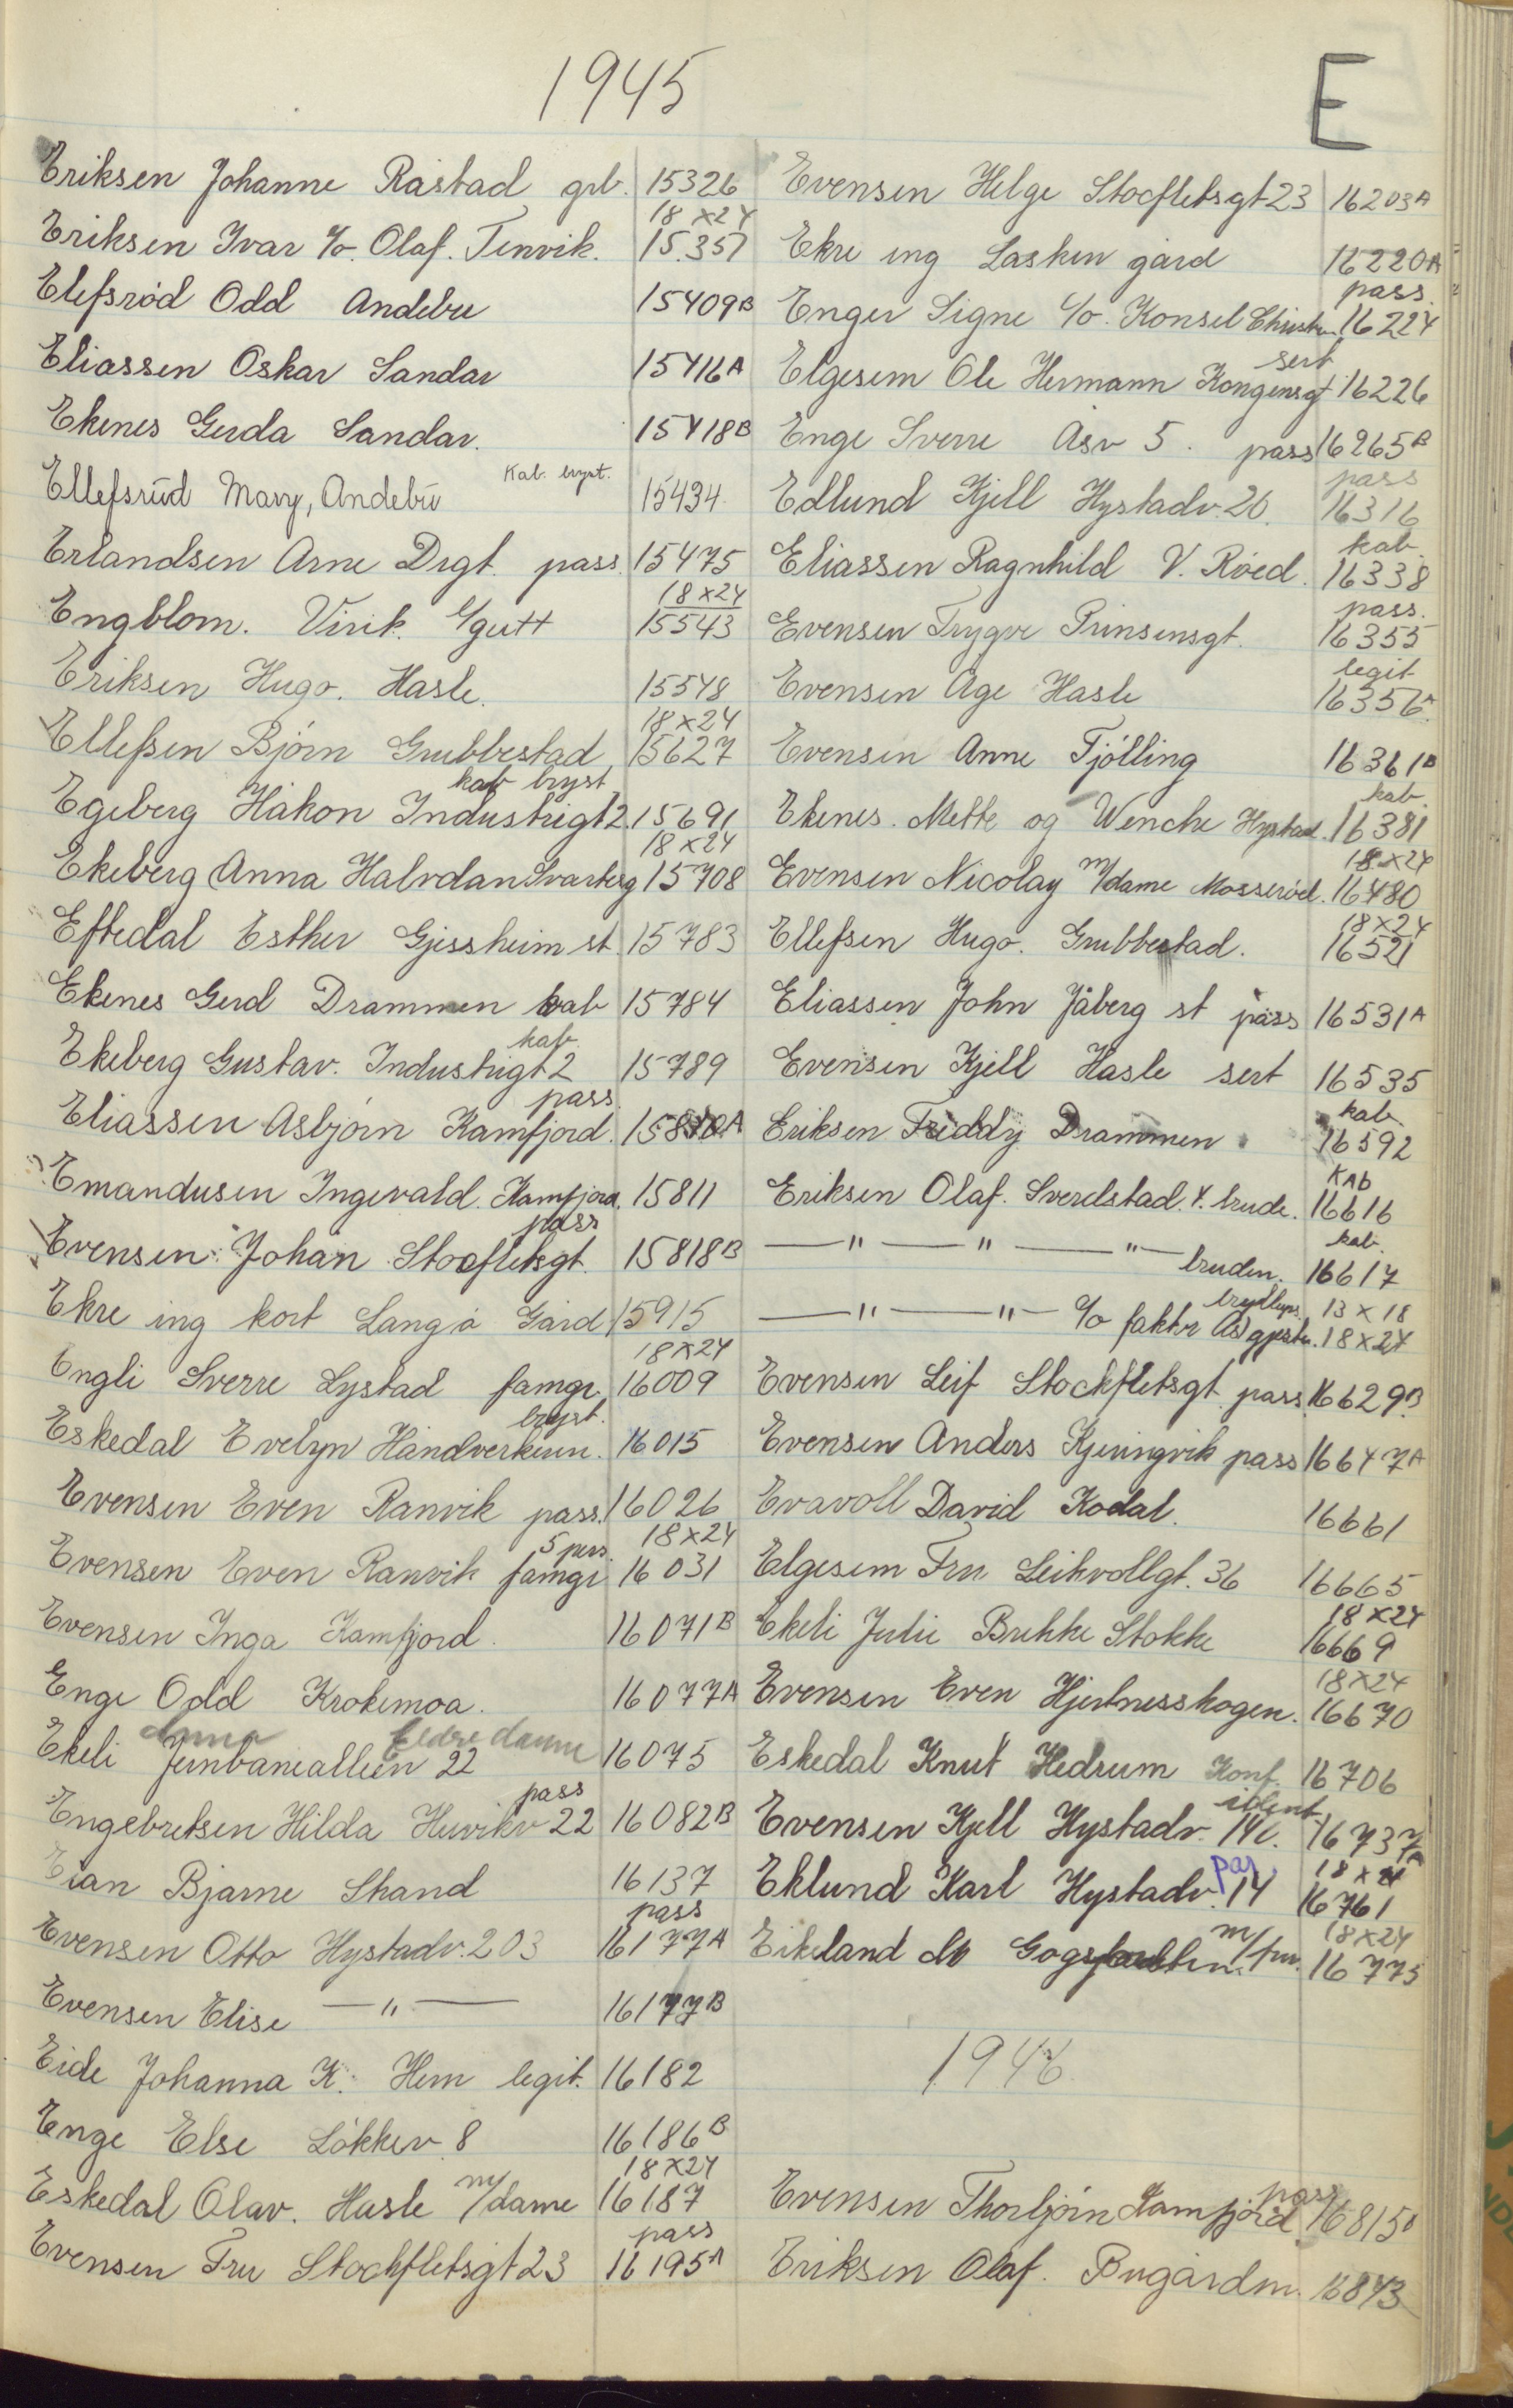 1945
E
Eriksen Johanne Råstad grb. 15326
18x24
Eriksen Ivar c/o. Olaf. Tenvik. 15351
Elefsrød Odd Andebu 15409B
Eliassen Oskar Sandar 15416A
Ekenes Gerda Sandar. 15418B
Ellefsrud Mary, Andebu Kab. bryst. 15434
Erlandsen Arne Drgt. pass. 15475
18x24
Engblom. Virik. 1/gutt 15543
Eriksen Hugo. Hasle. 15548
18x24
Ellefsen Bjørn Grubbestad 15627
kab bryst
Egeberg Håkon Industrigt 2. 15691
18x24
Ekeberg Anna Halvdan Svartesg 15708
Eftedal Esther Gjessheim st. 15783
Ekenes Gerd Drammen kab 15784
kab.
Ekeberg Gustav. Industrigt 2 15789
pass.
Eliassen Asbjørn Kamfjord. 15810A
Emandusen Ingevald. Kamfjord. 15811
pass
Evensen Johan Stocfletsgt. 15818B
Ekre ing kort Langå Gård 15915
18x24
Engli Sverre Lystad famgr. 16009
bryst.
Eskedal Evelyn Håndverkeren. 16015
Evensen Even Ranvik pass. 16026
5 pers. 18x24
Evensen Even Ranvik famgr 16031
Evensen Inga Kamfjord. 16071B
Enge Odd Krokemoa. 16077A
dame Eldre dame
Ekeli Jernbanealleen 22 16075
pass
Engebretsen Hilda Huvikv 22 16082B
Eian Bjarne Skand 16137
pass
Evensen Otto Hystadv. 203 16177A
Evensen Elise — " — 16177B
Eide Johanna K. Hem legit. 16182
Enge Else Løkkev. 8 16186B
18x24
Eskedal Olav. Hasle m/dame 16187
pass
Evensen Fru Stockfletsgt 23 16195A
Evensen Helge Stocfletsgt 23 16203A
Ekre ing Lasken gård 16220A
pass.
Enger Signe c/o. Konsel Christen. 16224
sert
Elgesem Ole Hermann Kongensgt 16226
Enge Sverre Åsv 5. pass 16265B
pass
Edlund Kjell Hystadv. 20. 16316
kab.
Eliassen Ragnhild V. Røed. 16338
pass.
Evensen Trygve Prinsensgt. 16355
legit
Evensen Åge Hasle 16356A
Evensen Anne Tjølling 16361B
kab.
Ekenes. Mette og Wenche Hystad. 16381
18x24
Evensen Nicolay m/dame Mosserød. 16480
18x24
Ellefsen Hugo. Grubbestad. 16521
Eliassen John Jåberg st pass 16531A
Evensen Kjell Hasle sert 16535
kab.
Eriksen Freddy Drammen 16592
KAb
Eriksen Olaf. Sverdstad. 4. brude. 16616
kab.
— " — " — " — bruden. 16617
bryllups. 13x18
— " — " — c/o faktr Ås gjester. 18x24
Evensen Leif Stockfletsgt pass. 16629B
Evensen Anders Kjeringvik pass 16647A
Evavoll David Kodal. 16661
Elgesem Fru Leikvollgt. 36 16665
18x24
Ekeli Julie Brekke Stokke 16669
18x24
Evensen Even Hjertnesskogen. 16670
Eskedal Knut Hedrum Konf. 16706
ident.
Evensen Kjell Hystadv. 14c. 16737A
par 18x24
Eklund Karl Hystadv. 14 16761
18x24
Eikeland M Gogstadveien. m/fru. 16775
1946
pass
Evensen Thorbjørn Kamfjord 16815B
Eriksen Olaf. Bugårdm. 16843